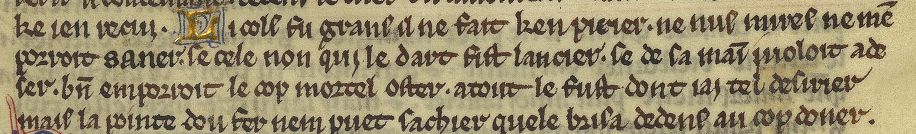 ke ien recui. Li cols fu grans il ne fait ken pirier. ne nus mires ne mē
porroit saner. se cele non qui le dart fist lancier. se de sa maī i uoloit ade
ser. bn̄ em porroit le cop mortel oster. atout le fust dont iai tel desirier
mais la pointe dou fer nem puet sachier quele brisa dedens au cop doner.